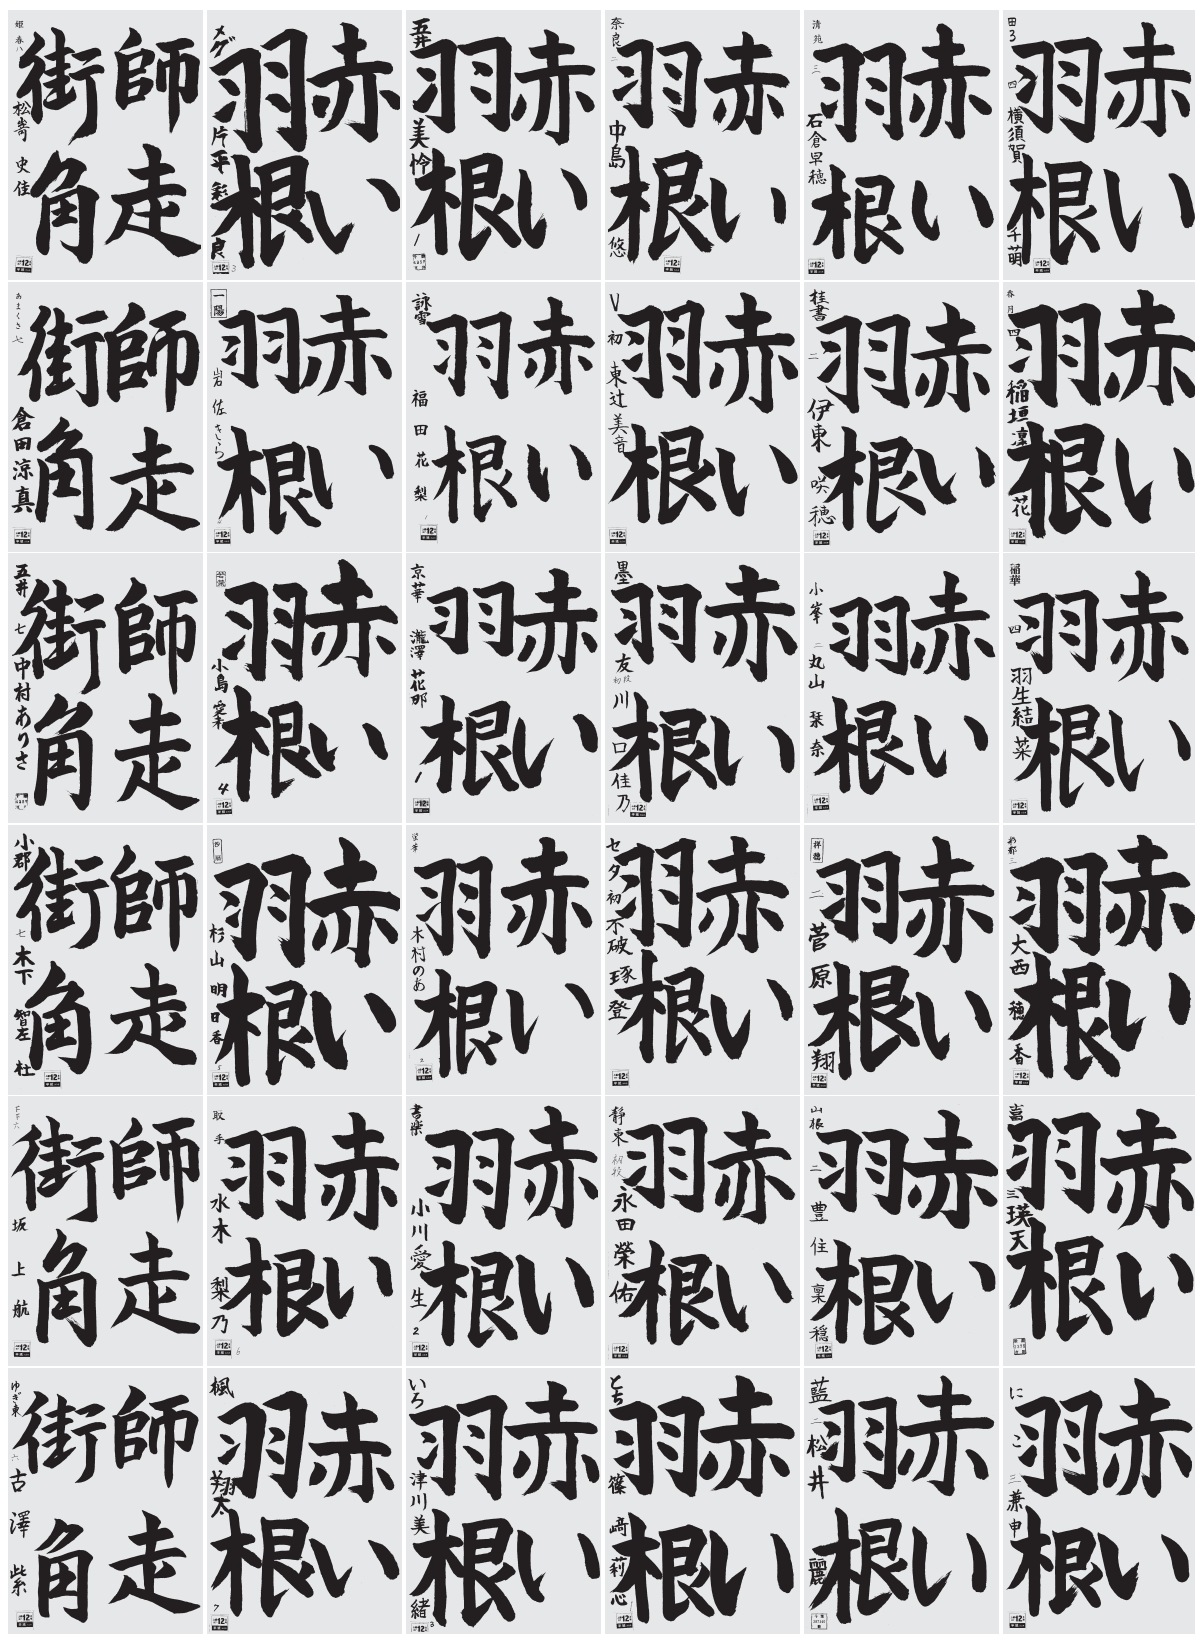 師走
街角
姫
春
八
松嵜
史佳
赤い
羽根
メグ
片平彩良
3
赤い
羽根
五井
美怜
1
赤い
羽根
奈良
二
中島
悠
赤い
羽根
清苑
三
石倉早穂
赤い
羽根
四
横須賀
千萌
師走
街角
あまくさ
七
倉田涼真
赤い
羽根
一陽
岩佐きらら
赤い
羽根
詠雪
福田花梨
赤い
羽根
初
東辻美音
赤い
羽根
桂書
二
伊東
咲穂
赤い
羽根
春月
四
稲垣凜花
師走
街角
五井
七
中村ありさ
赤い
羽根
小島
4
赤い
羽根
京華
瀧澤花那
1
赤い
羽根
墨友
初段
川口佳乃
赤い
羽根
小峯
二
丸山
栞奈
赤い
羽根
稲華
四
羽生結菜
師走
街角
小郡
七
木下
杜
赤い
羽根
杉山明日香
5
赤い
羽根
木村のあ
2
赤い
羽根
セタ
初
不破
琢登
赤い
羽根
祥穂
二
菅原
翔
赤い
羽根
三
大西
穂香
師走
街角
六
坂上航
赤い
羽根
取手
水木
梨乃
6
赤い
羽根
書楽
小川愛生
2
赤い
羽根
静東
初段
永田榮佑
赤い
羽根
山根
二
豊住
稟穏
赤い
羽根
三
瑛天
師走
街角
ゆぎ東
六
古澤
紫
赤い
羽根
楓
翔太
7
赤い
羽根
いろ
津川美緒
3
赤い
羽根
とち
篠﨑莉心
赤い
羽根
藍
二
松井
麗
赤い
羽根
にこ
三
兼申